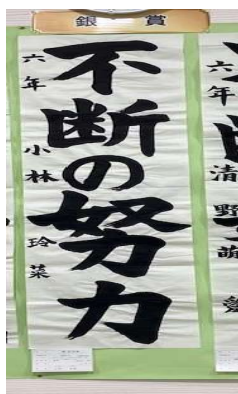 銀賞
不断の努力
六年 小林玲菜
六年 清野萌愛